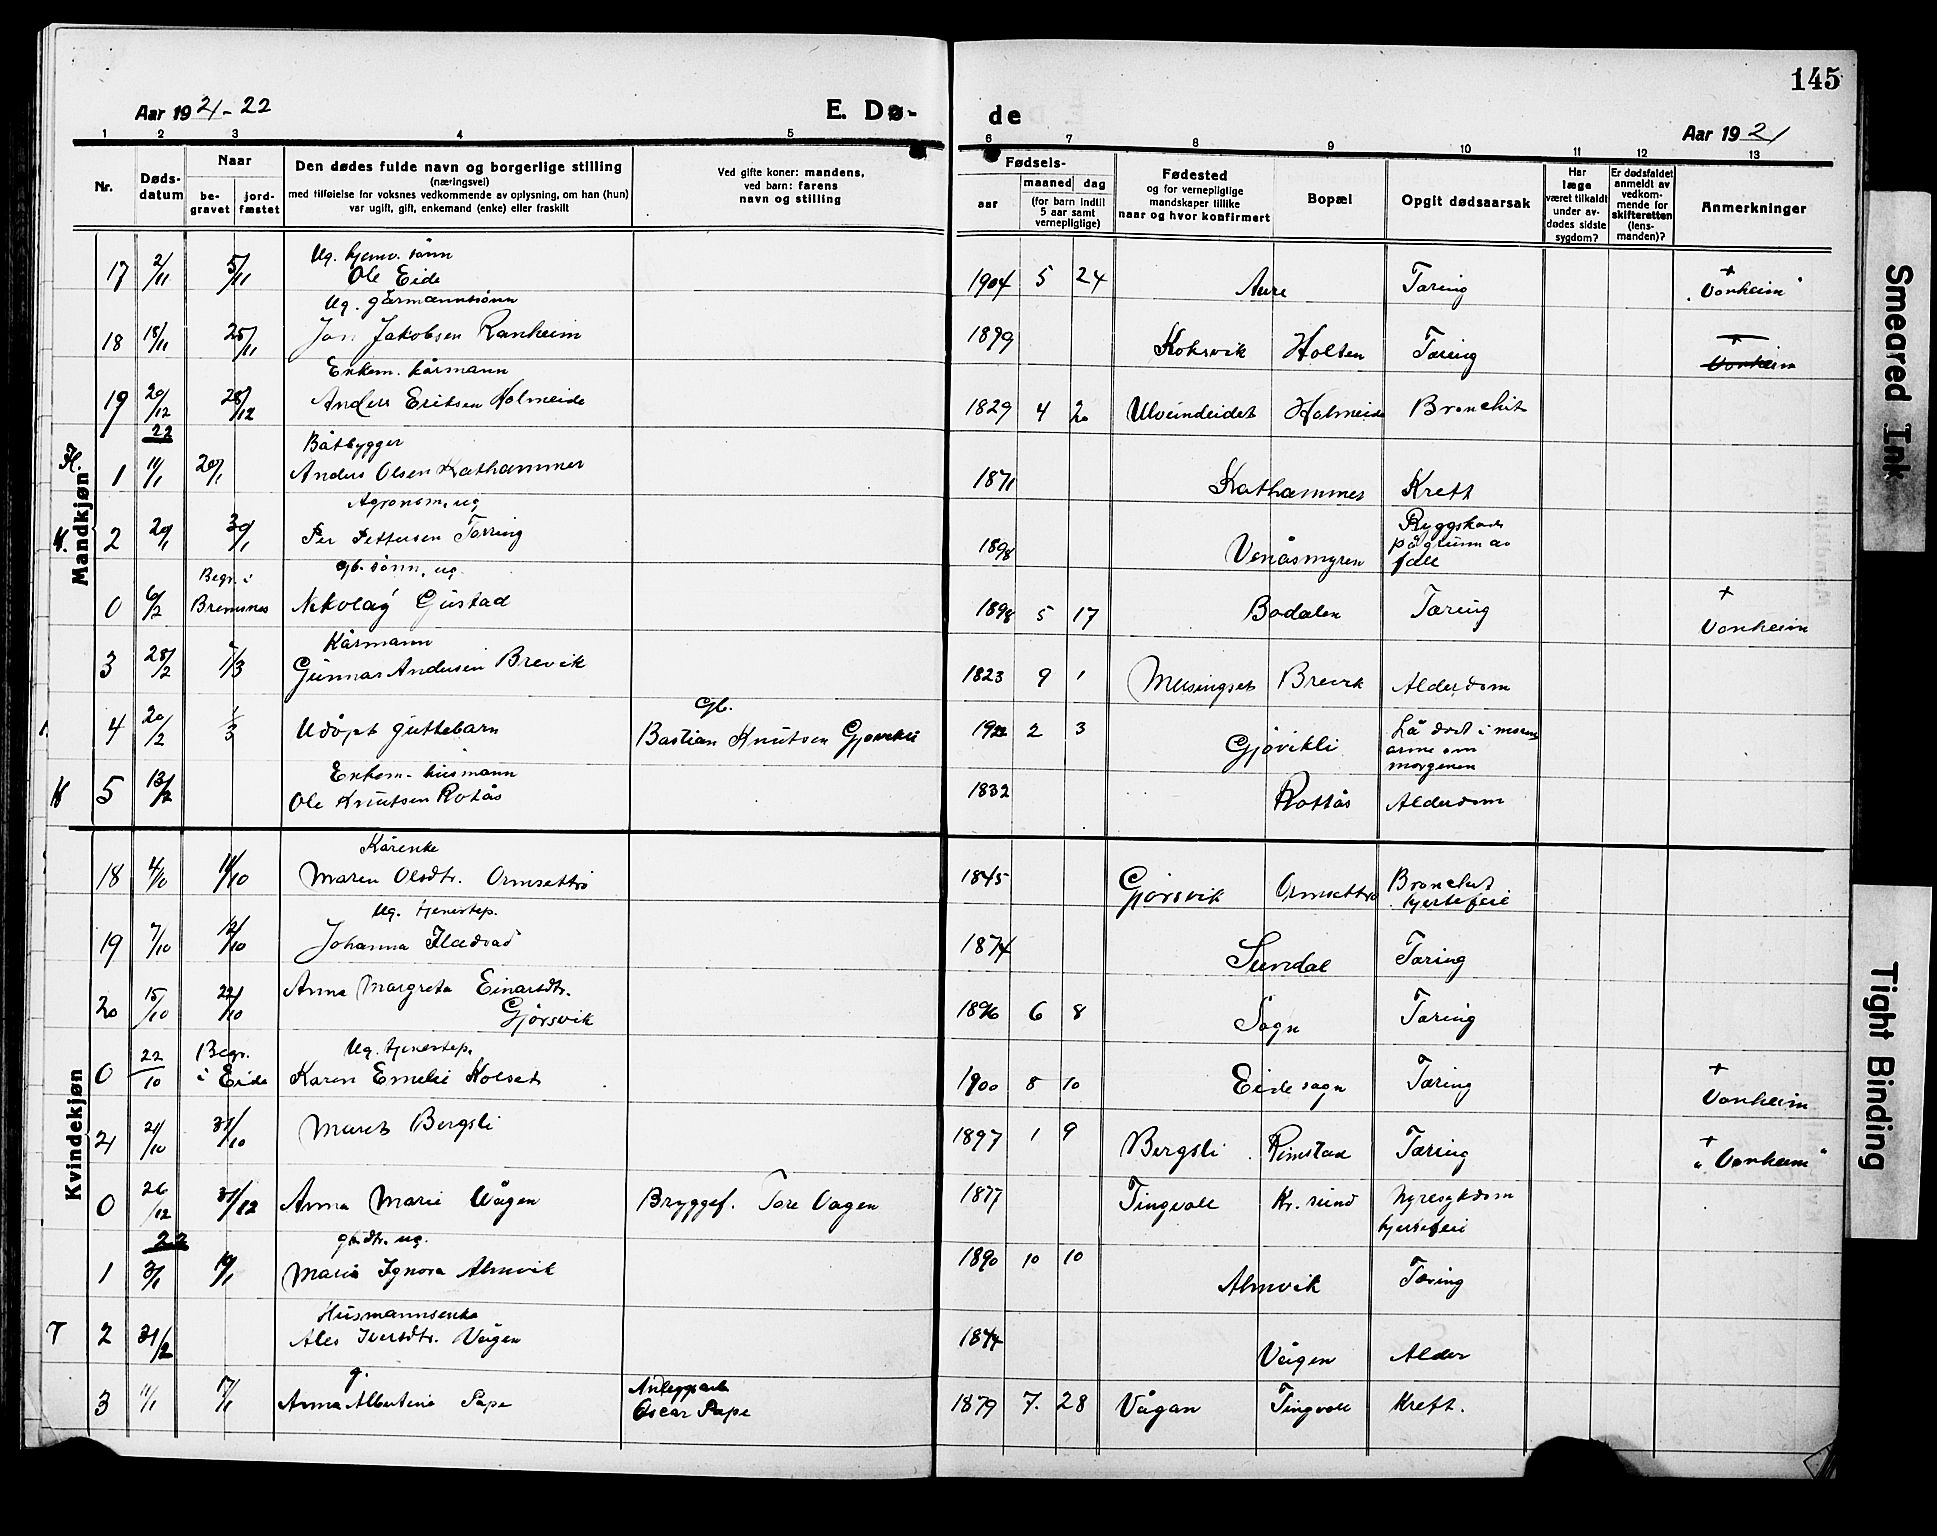 145
Aar 1921-22
E. Dø-
de
Aar 1921
1 2 3 4 5 6 7 8 9 10 11 12 13
Nr.
Døds-
datum
Naar
be-
gravet
jord-
fæstet
Den dødes fulde navn og borgerlige stilling
(næringsvei)
med tilføielse for voksnes vedkommende av oplysning, om han (hun)
var ugift, gift, enkemand (enke) eller fraskilt
Ved gifte koner: mandens,
ved barn: farens
navn og stilling
Fødsels-
aar
maaned dag
(for barn indtil
5 aar samt
vernepligtige)
Fødested
og for vernepligtige
mandskaper tillike
naar og hvor konfirmert
Bopæl
Opgit dødsaarsak
Har
læge
været tilkaldt
under av-
dødes sidste
sygdom?
Er dødsfaldet
anmeldt av
vedkom-
mende for
skifteretten
(lens-
manden)?
Anmerkninger
Mandkjøn
Ug. hjemv. sønn
17 2/11 5/11 Ole Eide 1904 5 24 Aure Tæring + "Vonheim"
Ug. gårmannssønn
18 18/11 25/11 Jon Jakobsen Ranheim 1899 Koksvik Holten Tæring + Vonheim
Enkem. kårmann
19 20/12 28/12 Anders Eriksen Holmeide 1829 4 20 Ulvundeidet Holmeide Bronchit
22
Båtbygger
1 11/1 20/1 Anders Olsen Kathammer 1871 Kathammer Kreft
Agronom, ug
K. 2 20/1 30/1 Per Pettersen Torring 1898 Venåsmyren Ryggskade
på grunn av
fall
Gb. sønn, ug.
0 6/2 Begr. i
Bremsnes Nikolay Gustad 1898 5 17 Bodalen Tæring + Vonheim
Kårmann
3 28/2 7/3 Gunnar Andersen Brevik 1823 9 1 Meisingset Brevik Alderdom
Gb.
4 20/2 1/3 Udøpt guttebarn Bastian Knutsen Gjøvikli 1922 2 3 Gjøvikli Lå død i morens
arme om
morgenen
Enkem. husmann
K 5 13/2 Ole Knutsen Rotås 1832 Rottås Alderdom
Kvindekjøn
Kårenke
18 4/10 11/10 Maren Olsdtr. Ormsettrø 1845 Gjørsvik Ormsettrø Bronchit
hjertefeil
Ug. tjenestep.
19 7/10 12/10 Johanna Fladvad 1874 Sundal Tæring
20 15/10 22/10 Anna Margreta Einarsdtr.
Gjørsvik 1896 6 8 Sogn Tæring
Ug. tjenestep.
0 22/10 Begr.
i Eide Karen Emelie Kolset 1900 8 10 Eide sogn Tæring + Vonheim
21 21/10 31/10 Marit Bergsli 1897 1 9 Bergsli Rimstad Tæring + "Vonheim"
0 26/12 31/12 Anna Marie Vågen Bryggef. Tore Vagen 1877 Tingvoll Kr. sund Nyresykdom
hjertefeil
22
gb.dtr. ug.
1 3/1 10/1 Maria Ignora Almvik 1890 10 10 Almvik Tæring
Husmannsenke
T 2 31/2 Ales Iversdtr. Vågen 1844 Vågen Alder
g.
3 11/1 17/1 Anna Albertine Pape Anleggsarb
Oscar Pape 1879 7. 28 Vågan Tingvoll Kreft.
Smeared Ink
Tight Binding